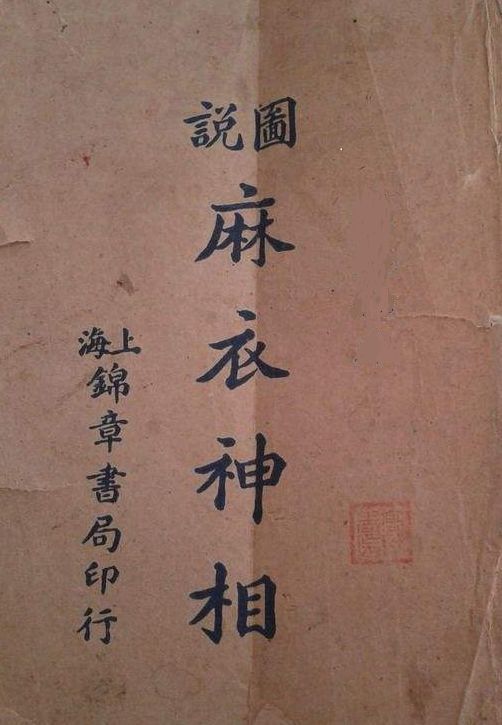 圖說
麻衣神相
上海
錦章書局印行